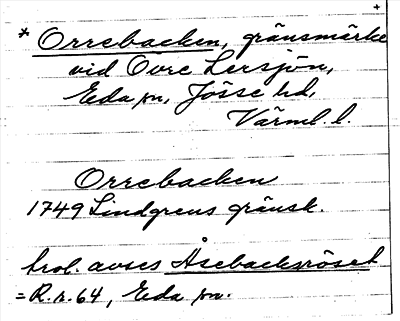 +
* Orrebacken, gränsmärke
vid Övre Lersjön,
Eda sn, Jösse hd,
Värml. l.
Orrebacken
1749 Lindgrens gränsk.
trol. avses Åsebacksröset
= R.r. 64, Eda sn.